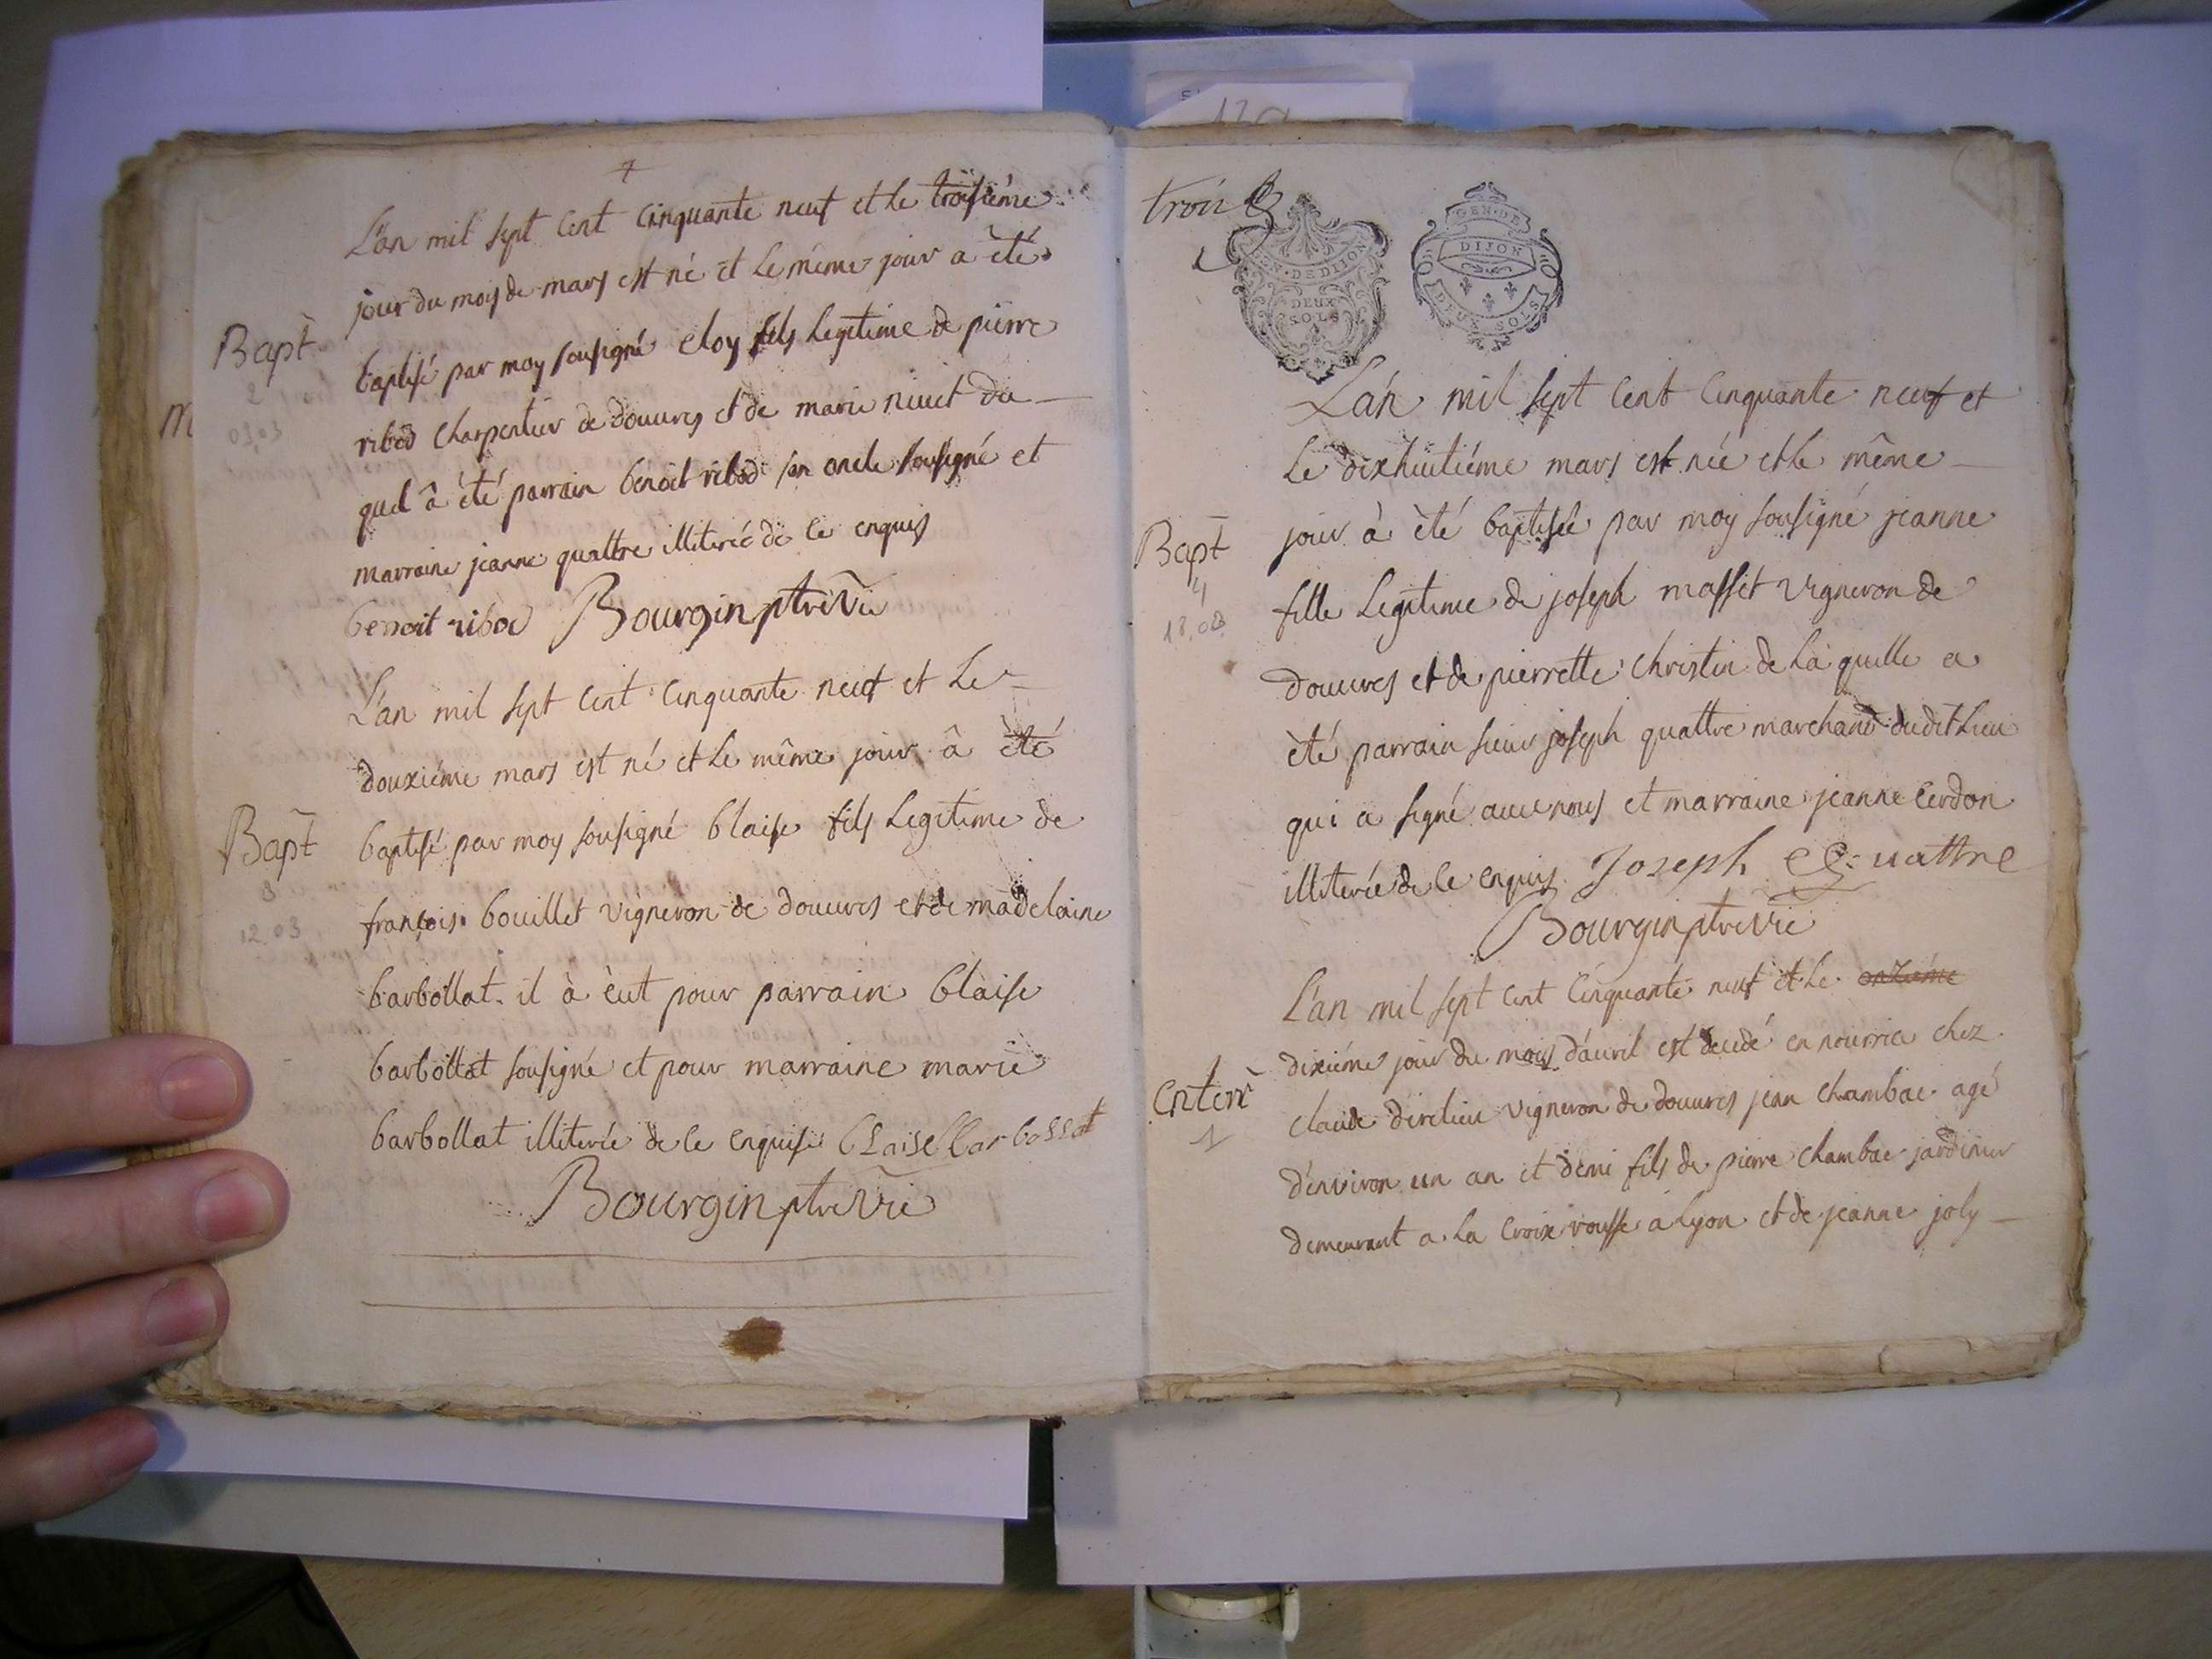 L'an mil sept Cent Cinquante neuf et le troisiéme
jour du mois de mars est né et le méme jour a èté
Bapt
baptisé par moy sousigné eloy fils legitime de pierre
2
ribod Charpentier de douures et de marie niuet du
03.03
quel â èté parrain benoit ribod son oncle sousigné et
marraine jeanne quattre illiterée de ce enquis
benoit ribod Bourgin ptre Vic
L'an mil sept Cent Cinquante neuf et le
douziéme mars est né et le même jour â èté
Bapt
baptisé par moy sousigné blaise fils legitime de
3
françois bouillet vigneron de douures et de madelaine
12.03
barbollat. il à èut pour parrain blaise
barbollat sousigné et pour marraine marie
barbollat illiterée de ce enquise blaise barbollat
Bourgin ptre Vic
trois
GEN. DE DIJON
DEUX
SOLS
GEN. DE
DIJON
DEUX SOLS
L'an mil sept Cent Cinquante neuf et
le dixhuitiéme mars est née et le même
Bapt
jour à èté baptisée par moy sousigné jeanne
4
fille legitime de joseph masset vigneron de
18.03
douures et de pierrette Christin de laquelle a
èté parrain sieur joseph quattre marchand dudit lieu
qui a signé auec nous et marraine jeanne Cerdon
illiterée de ce enquis Joseph Quattre
Bourgin ptre Vic
L'an mil sept Cent Cinquante neuf et le onziéme
dixiéme jour du mois d'auril est decedé en nourrice chez
Enterr
claude direlieu vigneron de douures jean Chambae agé
1
d'enuiron un an et demi fils de pierre Chambae jardinier
demeurant a la Croix rousse a lyon et de jeanne joly